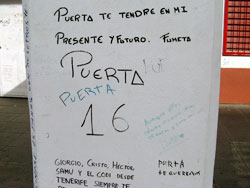 PUERTA TE TENDRE EN MI
PRESENTE Y FUTURO. FUMETA
PUERTA
PUERTA
16
GIORGIO, CRISTO, HECTOR
SAMU Y EL CODI DESDE
TENERIFE SIEMPRE TE
PUERTA
TE QUEREMOS